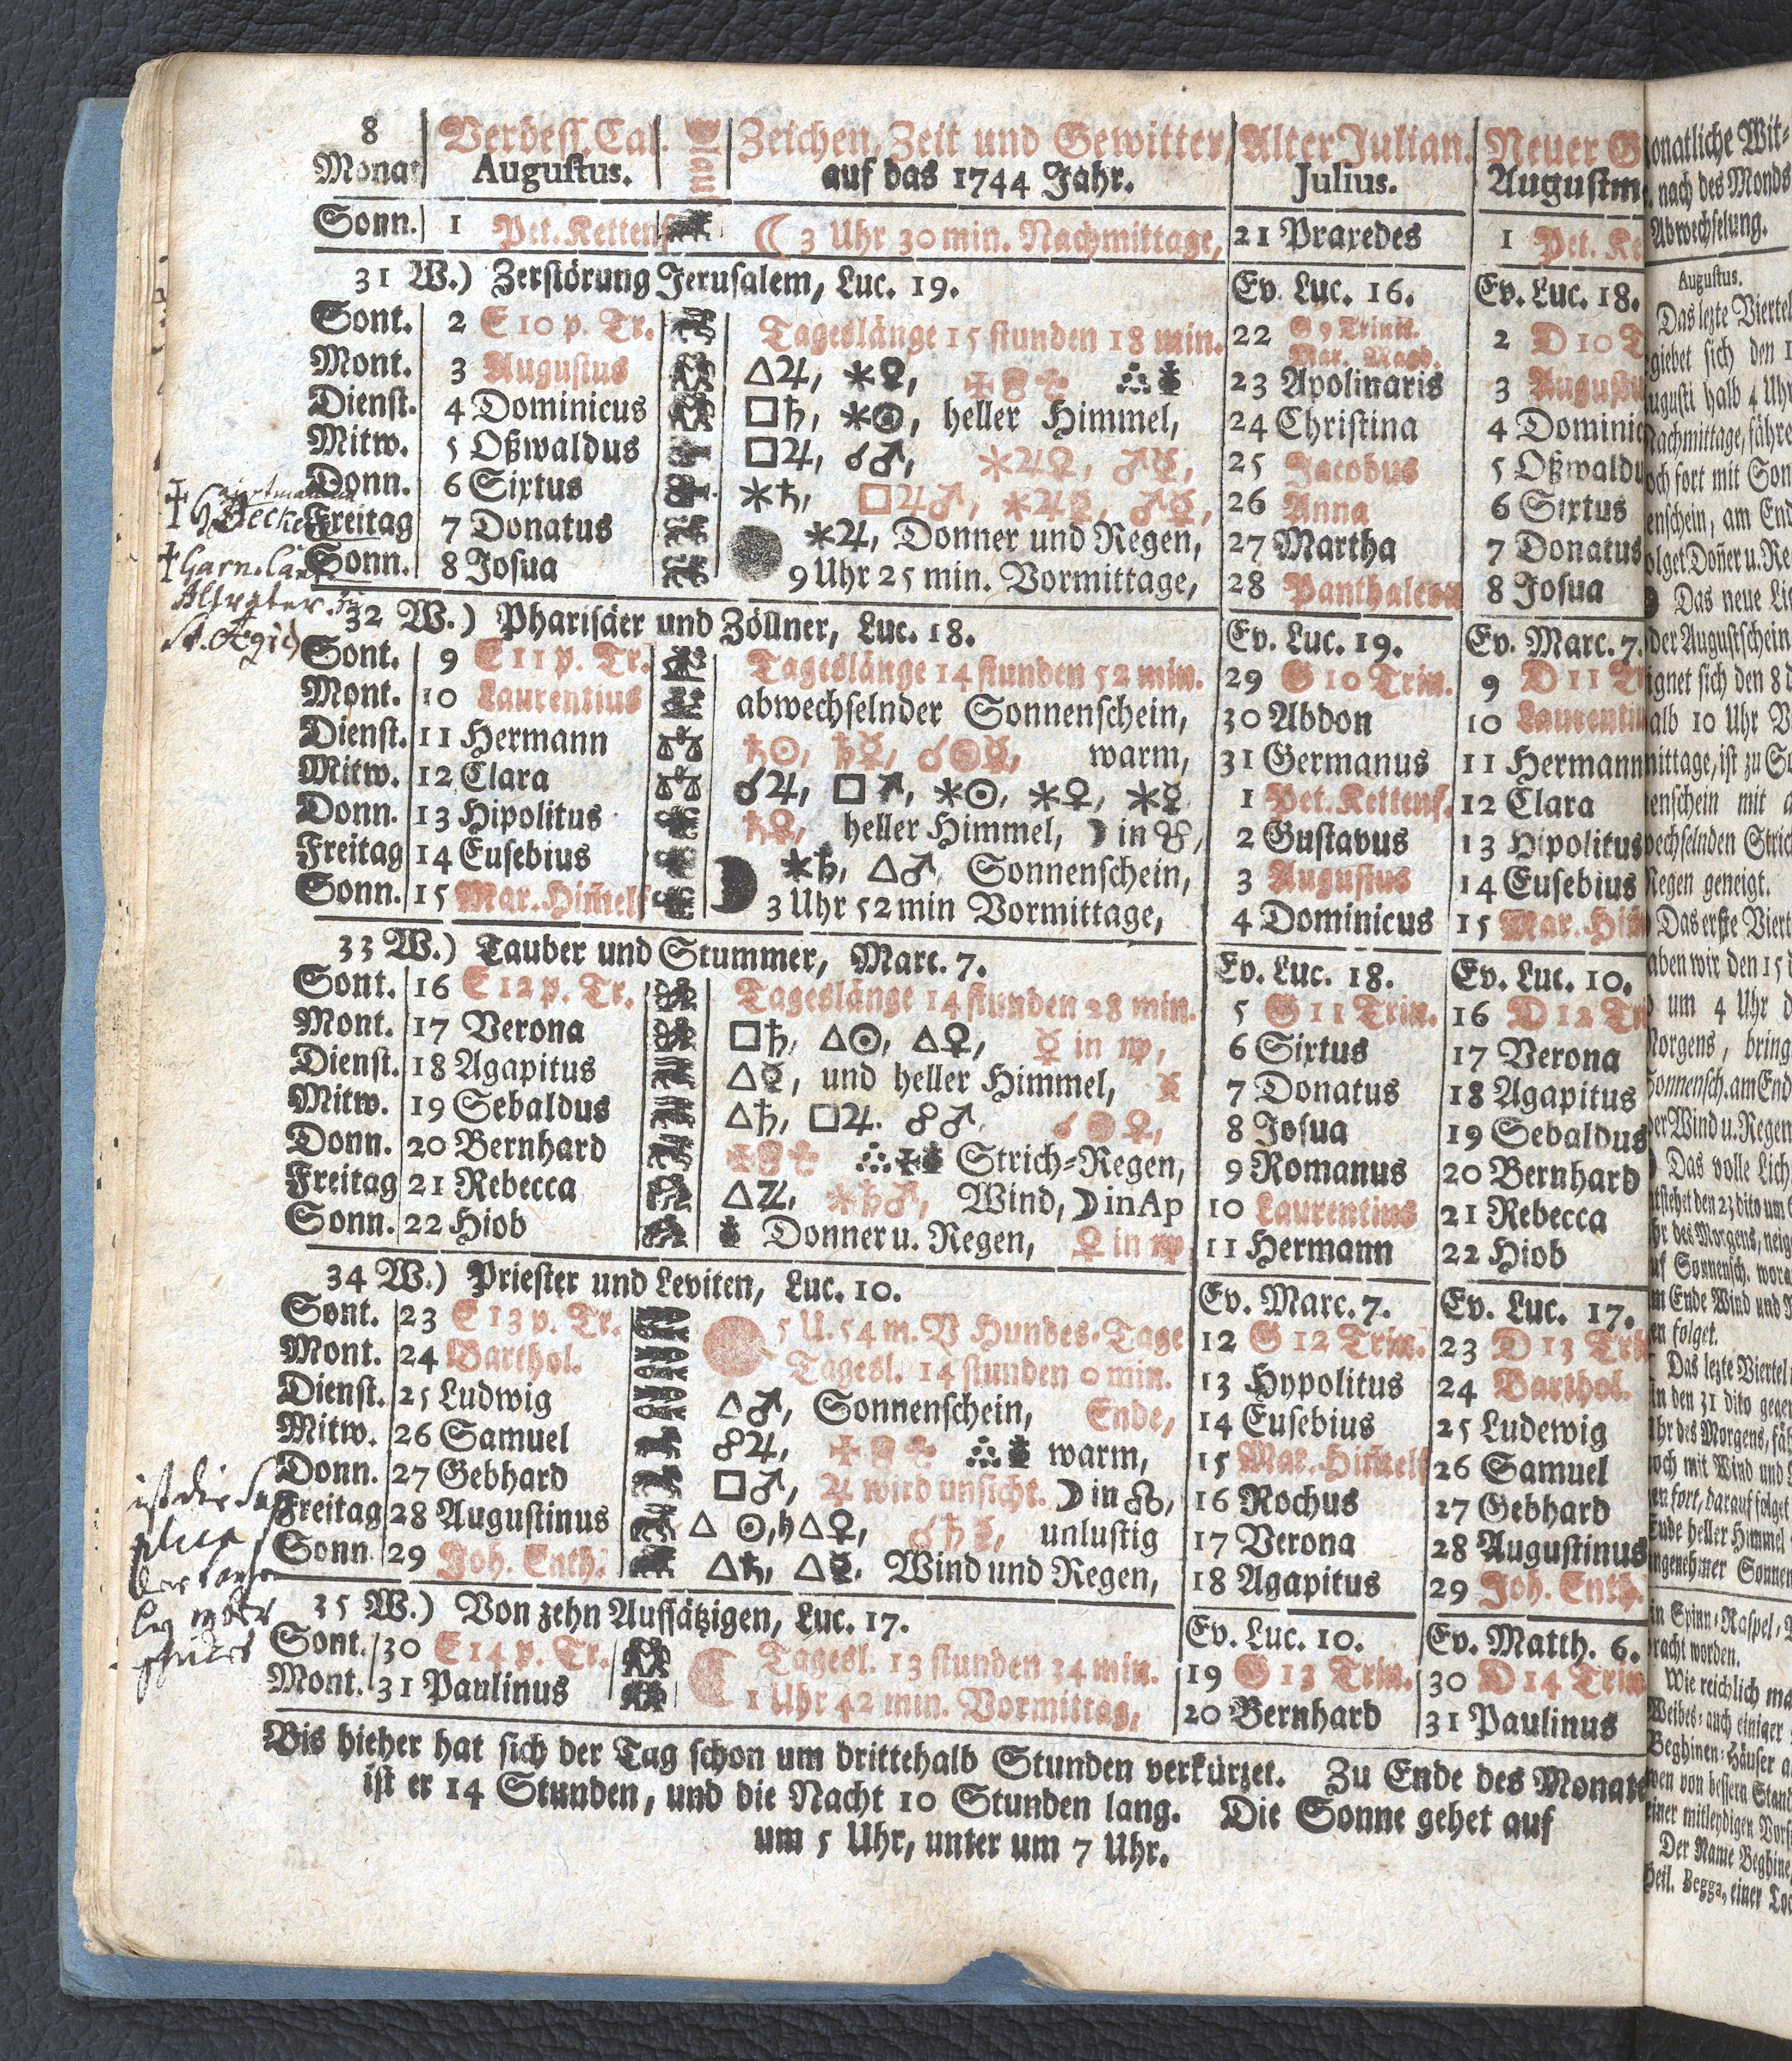 8 Verbess. Cal. Zeichen, Zeit und Gewitter, Alter Julian. Neuer G
Monat Augustus. auf das 1744 Jahr. Julius. Augustm
Sonn. 1 Pet. Kettenf ☾ 3 Uhr 30 min. Nachmittage, 21 Praxedes 1 Pet. Ke
31 W.) Zerstörung Jerusalem, Luc. 19. Ev. Luc. 16. Ev. Luc. 18.
Sont. 2 E 10 p. Tr. Tageslänge 15 stunden 18 min. 22 G 9 Trinit. Mar. Magd. 2 D 10 T
Mont. 3 Augustus △♃, ⚹♀, 23 Apolinaris 3 Augustu
Dienst. 4 Dominicus □♄, ⚹☉, heller Himmel, 24 Christina 4 Dominic
Mitw. 5 Oßwaldus □♃, ☌♂, ⚹♃♀, ♂☿, 25 Jacobus 5 Oßwaldu
Donn. 6 Sixtus ⚹♄, □♃♂, ⚹♃☿, ♂☿, 26 Anna 6 Sixtus
Freitag 7 Donatus ⚹♃, Donner und Regen, 27 Martha 7 Donatus
Sonn. 8 Josua 9 Uhr 25 min. Vormittage, 28 Panthaleon 8 Josua
32 W.) Pharisäer und Zöllner, Luc. 18. Ev. Luc. 19. Ev. Marc. 7.
Sont. 9 E 11 p. Tr. Tageslänge 14 stunden 52 min. 29 G 10 Trin. 9 D 11 T
Mont. 10 Laurentius abwechselnder Sonnenschein, 30 Abdon 10 Laurentiu
Dienst. 11 Hermann ♄☉, ♄☿, ☌☉☿, warm, 31 Germanus 11 Hermann
Mitw. 12 Clara ☌♃, □♂, ⚹☉, ⚹♀, ⚹☿ 1 Pet. Kettenf. 12 Clara
Donn. 13 Hipolitus ♄♀, heller Himmel, ☽ in ☋, 2 Gustavus 13 Hipolitus
Freitag 14 Eusebius ⚹♄, △♂, Sonnenschein, 3 Augustus 14 Eusebius
Sonn. 15 Mar. Him̃elf 3 Uhr 52 min Vormittage, 4 Dominicus 15 Mar. Him
33 W.) Tauber und Stummer, Marc. 7. Ev. Luc. 18. Ev. Luc. 10.
Sont. 16 E 12 p. Tr. Tageslänge 14 stunden 28 min. 5 G 11 Trin. 16 D 12 Tr
Mont. 17 Verona □♄, △☉, △♀, ☿ in ♍, 6 Sixtus 17 Verona
Dienst. 18 Agapitus △☿, und heller Himmel, 7 Donatus 18 Agapitus
Mitw. 19 Sebaldus △♄, □♃. ☍♂, ☌☉♀, 8 Josua 19 Sebaldus
Donn. 20 Bernhard Strich-Regen, 9 Romanus 20 Bernhard
Freitag 21 Rebecca △♃, ⚹♄♂, Wind, ☽ in Ap 10 Laurentius 21 Rebecca
Sonn. 22 Hiob Donner u. Regen, ♀ in ♍ 11 Hermann 22 Hiob
34 W.) Priester und Leviten, Luc. 10. Ev. Marc. 7. Ev. Luc. 17.
Sont. 23 E 13 p. Tr. 5 U. 54 m. V Hundes-Tage 12 G 12 Trin. 23 D 13 Tri
Mont. 24 Barthol. Tagesl. 14 stunden 0 min. 13 Hypolitus 24 Barthol.
Dienst. 25 Ludwig △♂, Sonnenschein, Ende, 14 Eusebius 25 Ludewig
Mitw. 26 Samuel ☍♃, warm, 15 Mar. Him̃elf 26 Samuel
Donn. 27 Gebhard □♂, ♃ wird unsicht. ☽ in ☊, 16 Rochus 27 Gebhard
Freitag 28 Augustinus △ ☉,♄△♀, ☌♄☿, unlustig 17 Verona 28 Augustinus
Sonn. 29 Joh. Enth. △♄, △☿. Wind und Regen, 18 Agapitus 29 Joh. Enth.
35 W.) Von zehn Aussätzigen, Luc. 17. Ev. Luc. 10. Ev. Matth. 6.
Sont. 30 E 14 p. Tr. Tagesl. 13 stunden 34 min. 19 G 13 Trin. 30 D 14 Trin
Mont. 31 Paulinus 1 Uhr 42 min. Vormittag, 20 Bernhard 31 Paulinus
Bis hieher hat sich der Tag schon um drittehalb Stunden verkürzet. Zu Ende des Monats
ist er 14 Stunden, und die Nacht 10 Stunden lang. Die Sonne gehet auf
um 5 Uhr, unter um 7 Uhr.
onatliche Wit-
nach des Monds
Abwechselung.
Augustus.
Das lezte Viertel
giebet sich den 1
ugusti halb 4 Uhr
Nachmittage, fähre
och fort mit Son
enschein, am End
olget Doñer u. Re
Das neue Lic
der Augustschein
ignet sich den 8 d
alb 10 Uhr V
mittage, ist zu So
enschein mit a
wechselnden Stric
Regen geneigt.
Das erste Viert
aben wir den 15 d
um 4 Uhr d
Morgens, bring
Sonnensch. am End
er Wind u. Regen
Das volle Lich
tstehet den 23 dito um 6
hr des Morgens, neig
uf Sonnensch. wora
m Ende Wind und R
en folget.
Das lezte Viertel
in den 31 dito gegen
Uhr des Morgens, fäh
noch mit Wind und
en fort, darauf folget
Ende heller Himmel
ngenehmer Sonnen
in Spinn-Raspel-
racht worden.
Wie reichlich ma
Weibes- auch einiger
Beghinen-Häuser a
wen von bessern Stand
einer mitleydigen Vors
Der Name Beghine
Heil. Begga, einer Toc